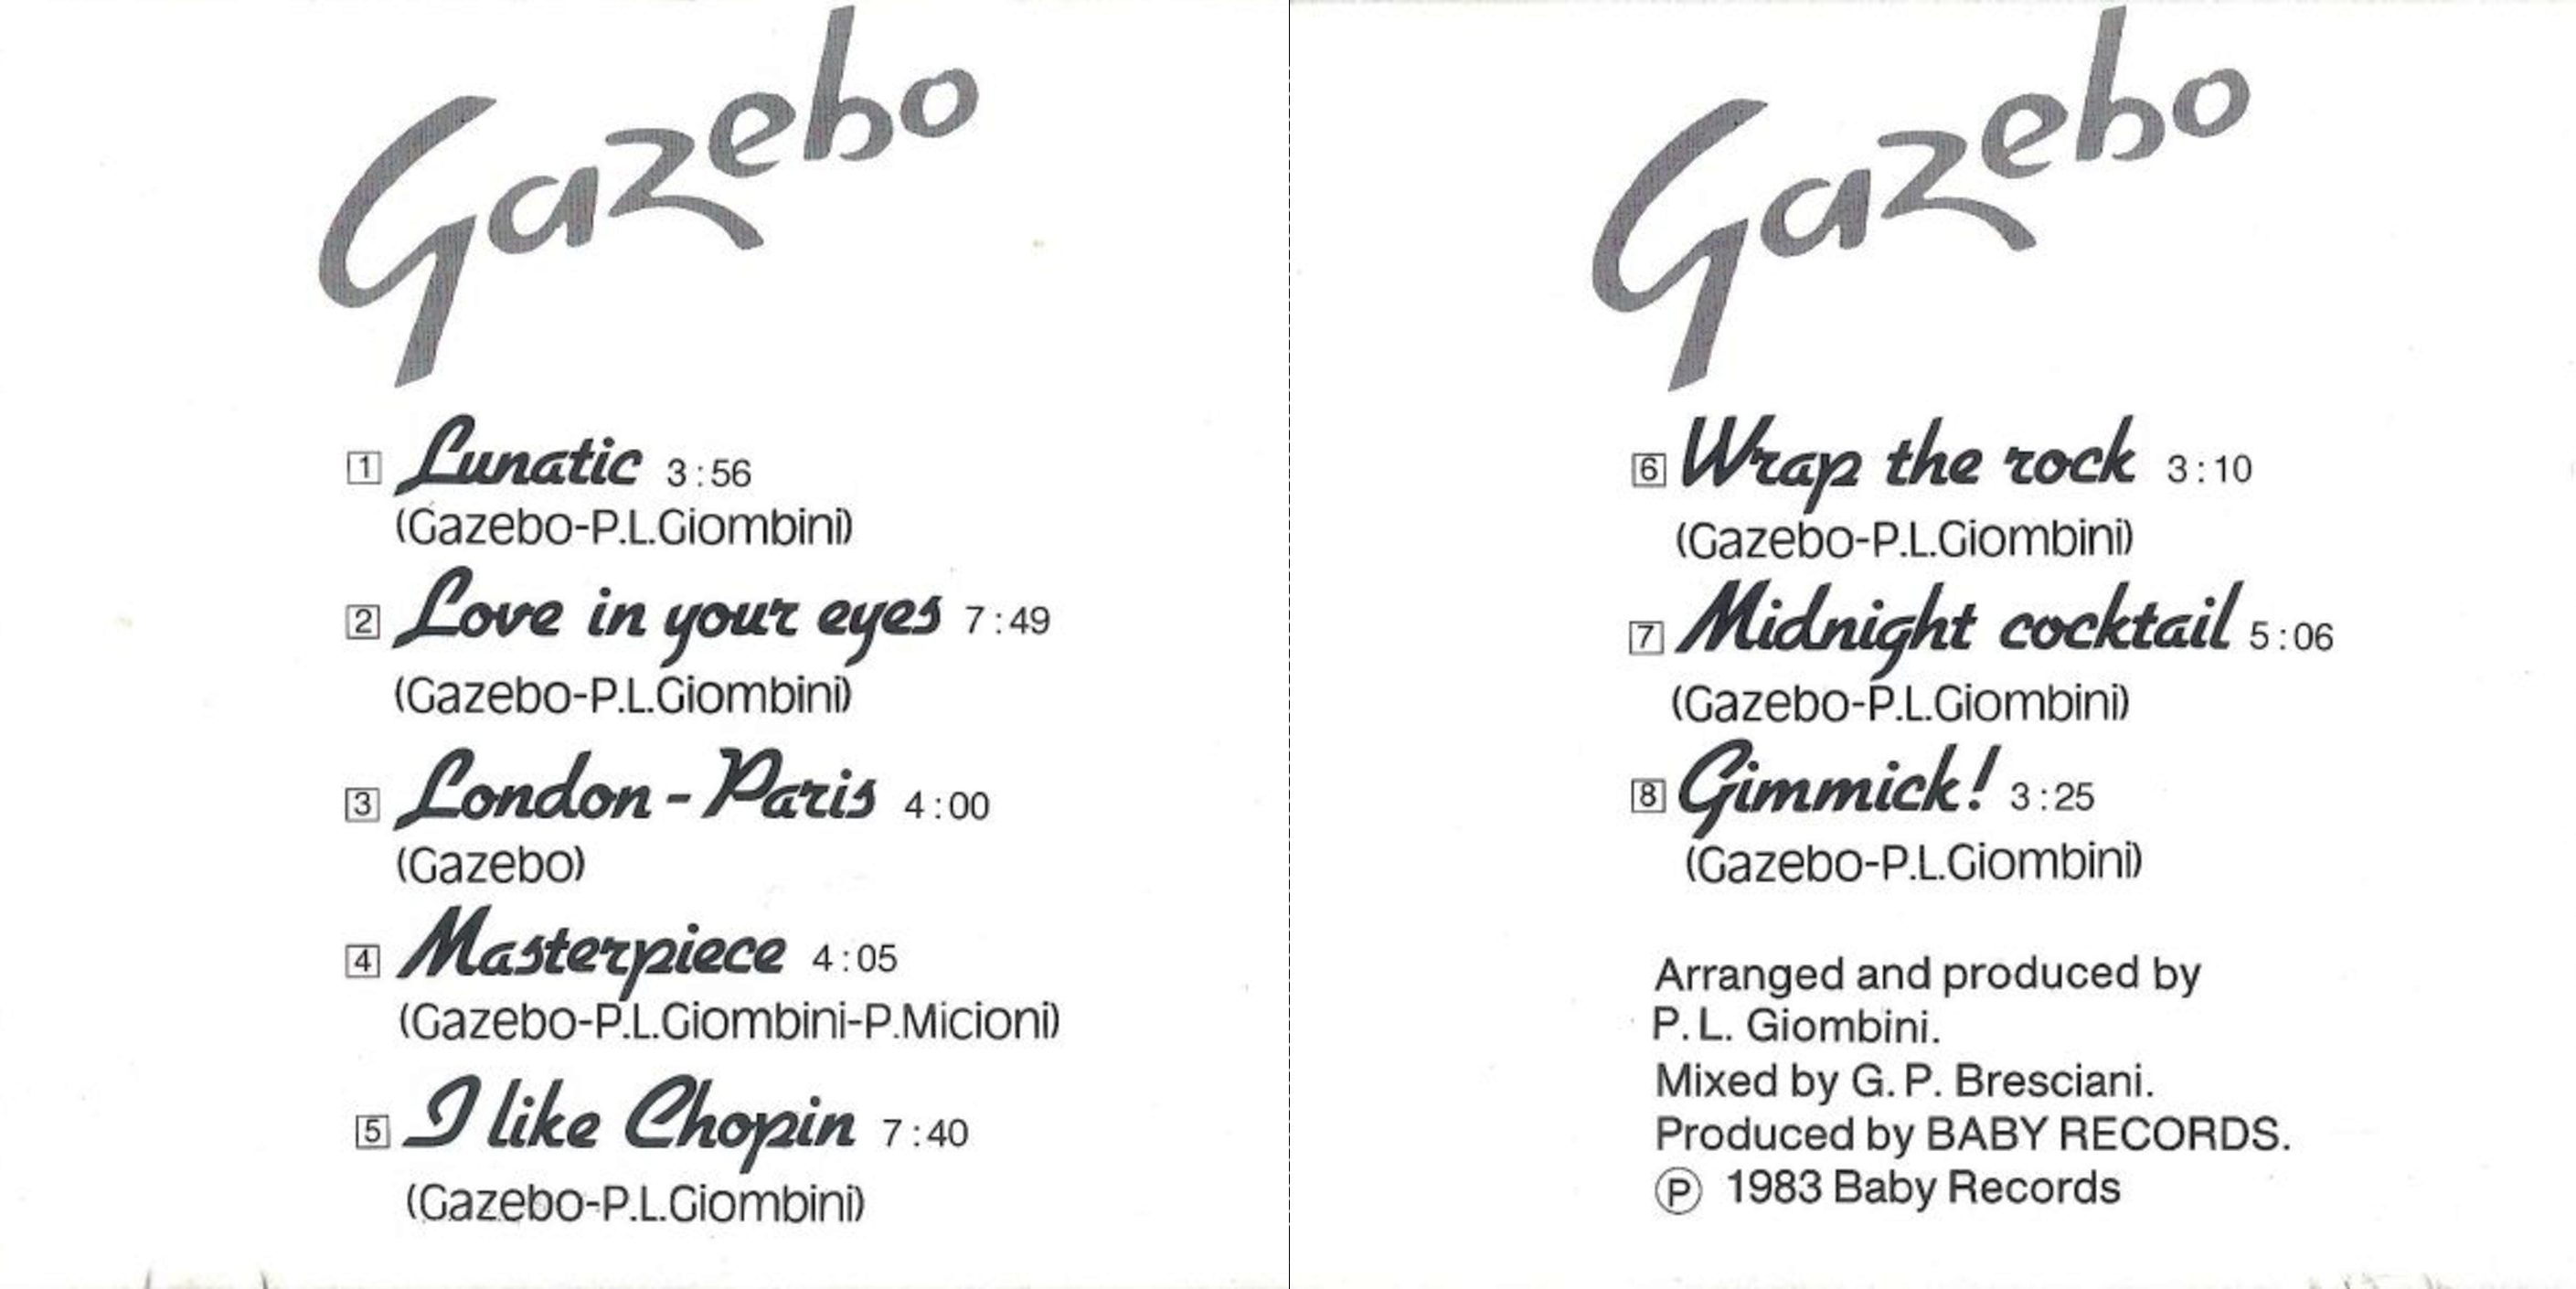 Gazebo
1 Lunatic 3:56
(Gazebo-P.L.Giombini)
2 Love in your eyes 7:49
(Gazebo-P.L.Giombini)
3 London - Paris 4:00
(Gazebo)
4 Masterpiece 4:05
(Gazebo-P.L.Giombini-P.Micioni)
5 I like Chopin 7:40
(Gazebo-P.L.Giombini)
Gazebo
6 Wrap the rock 3:10
(Gazebo-P.L.Giombini)
7 Midnight cocktail 5:06
(Gazebo-P.L.Giombini)
8 Gimmick! 3:25
(Gazebo-P.L.Giombini)
Arranged and produced by
P. L. Giombini.
Mixed by G. P. Bresciani.
Produced by BABY RECORDS.
Ⓟ 1983 Baby Records